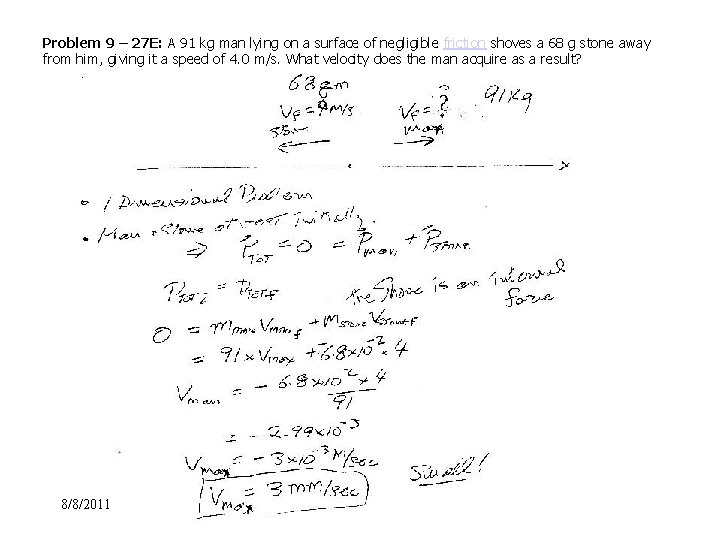 Problem 9 – 27E: A 91 kg man lying on a surface of negligible friction shoves a 68 g stone away
from him, giving it a speed of 4.0 m/s. What velocity does the man acquire as a result?
68 gm
V_f = 4 M/s V_f = ? 91 Kg
man
x
• 1 Dimensional Problem
• Man + Stone at rest Initially.
⇒ P_TOT = 0 = P_man + P_stone
P_TOTi = P_TOTf the Shove is an internal
force
0 = M_man V_man f + M_stone V_stone f
= 91 x V_man + 6.8 x 10^-2 x 4
V_man = - 6.8 x 10^-2 x 4
91
= - 2.99 x 10^-3
V_man = - 3 x 10^-3 M/sec Small!
V_man = 3 mM/sec
8/8/2011